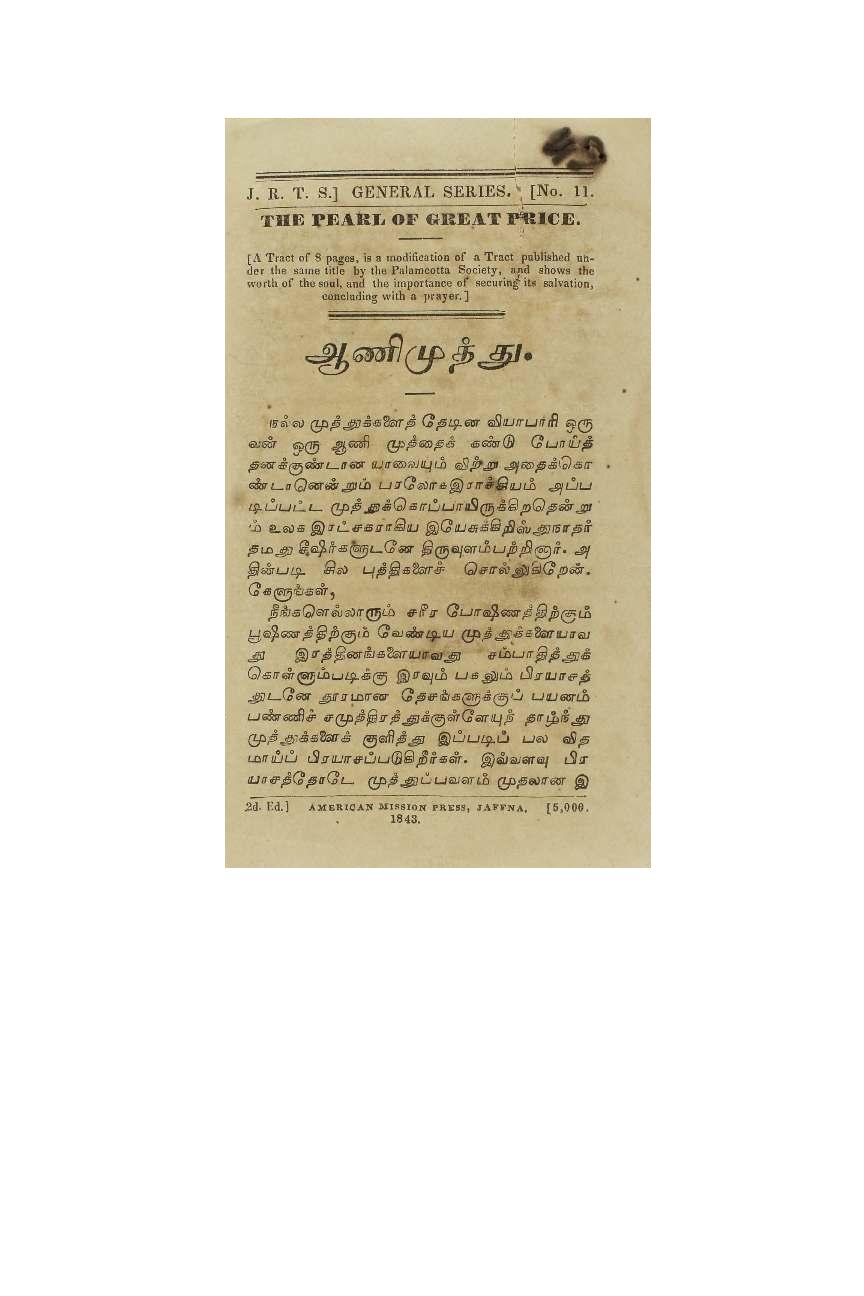 J. R. T. S.] GENERAL SERIES. [No. 11.
THE PEARL OF GREAT PRICE.
[A Tract of 8 pages, is a modification of a Tract published un-
der the same title by the Palamcotta Society, and shows the
worth of the soul, and the importance of securing its salvation,
concluding with a prayer.]
ஆணிமுத்து.
நல்ல முத்துக்களைத் தேடின வியாபாரி ஒரு
வன் ஒரு ஆணி முத்தைக் கண்டு போய்த்
தனக்குண்டான யாவையும் விற்று அதைக்கொ
ண்டானென்றும் பரலோகஇராச்சியம் அப்ப
டிப்பட்ட முத்துக்கொப்பாயிருக்கிறதென்று
ம் உலக இரட்சகராகிய இயேசுக்கிறிஸ்துநாதர்
தமது சீஷர்களுடனே திருவுளம்பற்றினார். அ
தின்படி சில புத்திகளைச் சொல்லுகிறேன்.
கேளுங்கள்,
நீங்களெல்லாரும் சரீர போஷிணத்திற்கும்
பூஷிணத்திற்கும் வேண்டிய முத்துக்களையாவ
து இரத்தினங்களையாவது சம்பாதித்துக்
கொள்ளும்படிக்கு இரவும் பகலும் பிரயாசத்
துடனே தூரமான தேசங்களுக்குப் பயணம்
பண்ணிச் சமுத்திரத்துக்குள்ளேயுந் தாழ்ந்து
முத்துக்களைக் குளித்து இப்படிப் பல வித
மாய்ப் பிரயாசப்படுகிறீர்கள். இவ்வளவு பிர
யாசத்தோடே முத்துப்பவளம் முதலான இ
2d. Ed.] AMERICAN MISSION PRESS, JAFFNA. [5,000.
1843.